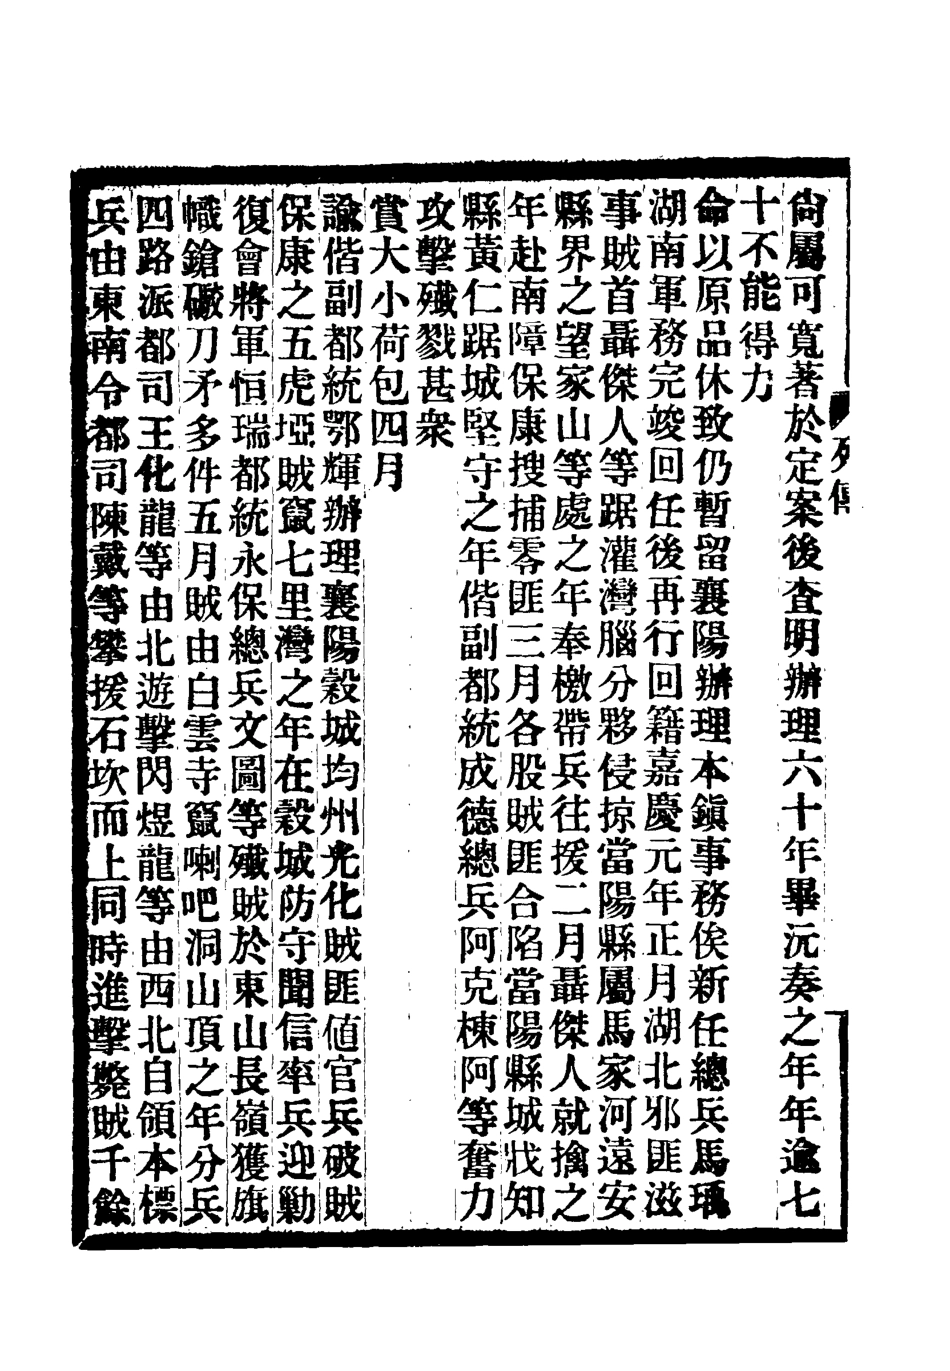 列傳
尙屬可寬著於定案後查明辦理六十年畢沅奏之年年逾七
十不能得力
命以原品休致仍暫留襄陽辦理本鎮事務俟新任總兵馬瑀
湖南軍務完竣回任後再行回籍嘉慶元年正月湖北邪匪滋
事賊首聶傑人等踞灌灣腦分夥侵掠當陽縣屬馬家河遠安
縣界之望家山等處之年奉檄帶兵往援二月聶傑人就擒之
年赴南障保康搜捕零匪三月各股賊匪合陷當陽縣城戕知
縣黃仁踞城堅守之年偕副都統成德總兵阿克棟阿等奮力
攻擊殲戮甚衆
賞大小荷包四月
諭偕副都統鄂輝辦理襄陽穀城均州光化賊匪値官兵破賊
保康之五虎埡賊竄七里灣之年在穀城防守聞信率兵迎勦
復會將軍恒瑞都統永保總兵文圖等殲賊於東山長嶺獲旗
幟鎗礮刀矛多件五月賊由白雲寺竄喇吧洞山頂之年分兵
四路派都司王化龍等由北遊擊閃煜龍等由西北自領本標
兵由東南令都司陳戴等攀援石坎而上同時進擊斃賊千餘